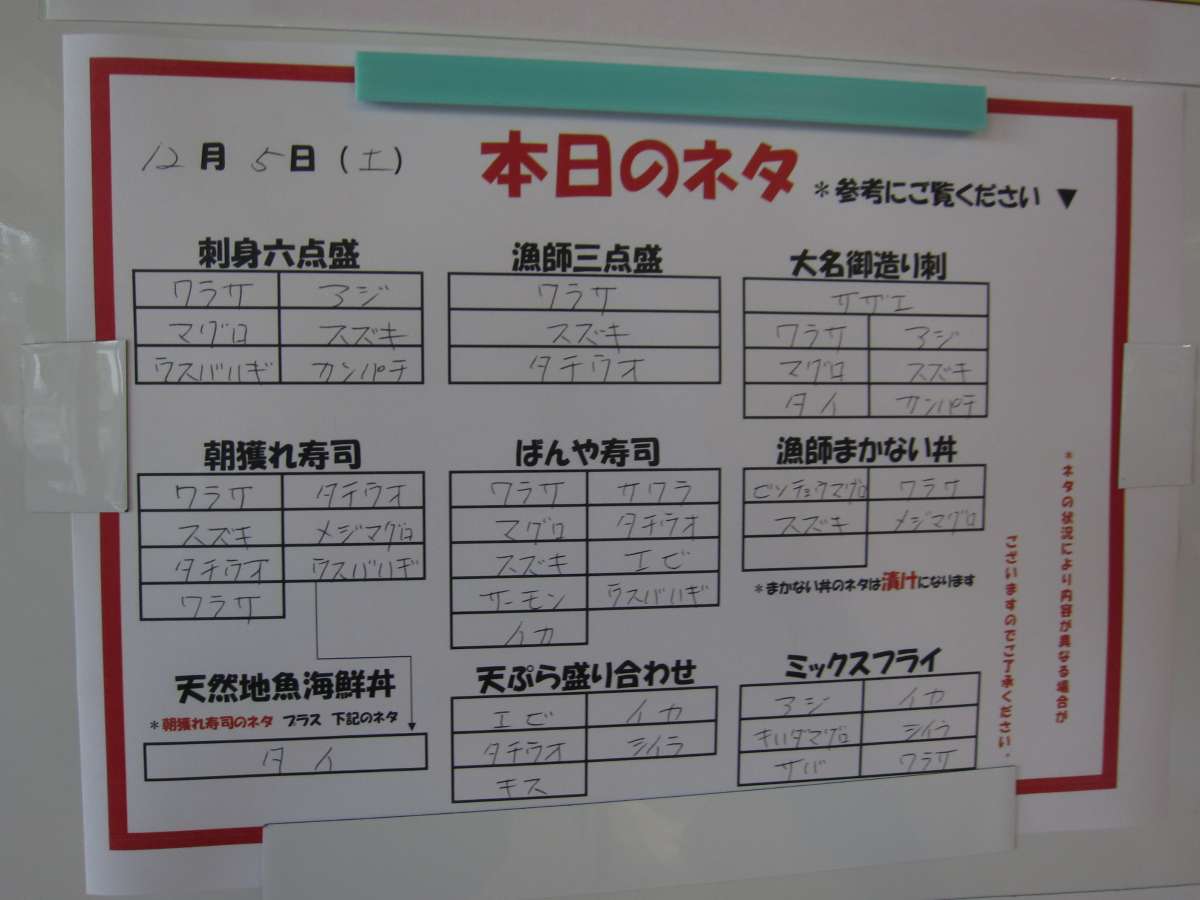 12月5日(土)
本日のネタ
*参考にご覧ください ▼
刺身六点盛
ワラサ アジ
マグロ スズキ
ウスバハギ カンパチ
漁師三点盛
ワラサ
スズキ
タチウオ
大名御造り刺
サザエ
ワラサ アジ
マグロ スズキ
タイ カンパチ
朝獲れ寿司
ワラサ タチウオ
スズキ メジマグロ
タチウオ ウスバハギ
ワラサ
ばんや寿司
ワラサ サワラ
マグロ タチウオ
スズキ エビ
サーモン ウスバハギ
イカ
漁師まかない丼
ビンチョウマグロ ワラサ
スズキ メジマグロ
*まかない丼のネタは漬けになります
天然地魚海鮮丼
*朝獲れ寿司のネタ プラス 下記のネタ
タイ
天ぷら盛り合わせ
エビ イカ
タチウオ シイラ
キス
ミックスフライ
アジ イカ
キハダマグロ シイラ
サバ ワラサ
*ネタの状況により内容が異なる場合が
ございますのでご了承ください。